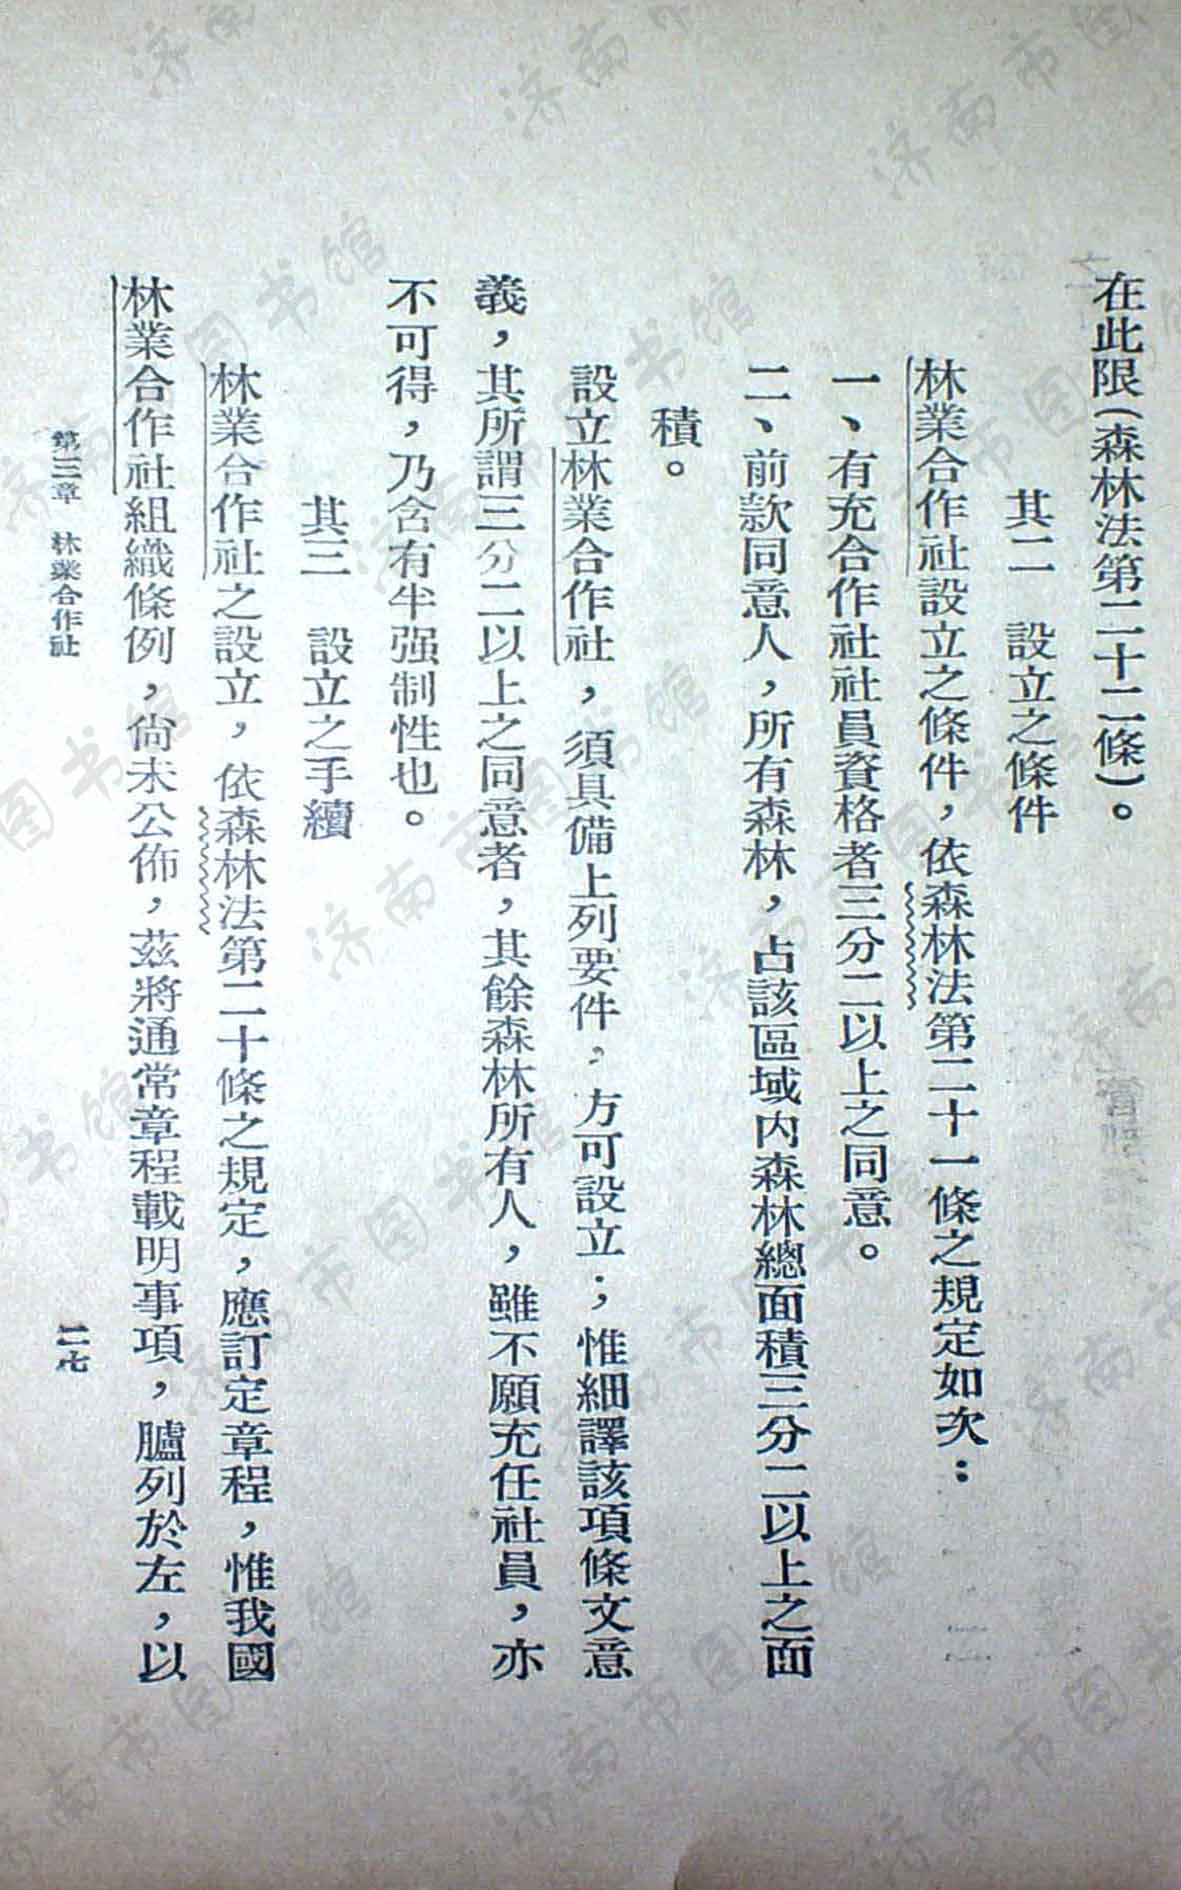 在此限(森林法第二十二條)。
其二　設立之條件
林業合作社設立之條件，依森林法第二十一條之規定如次：
一、有充合作社社員資格者三分二以上之同意。
二、前款同意人，所有森林，占該區域內森林總面積三分二以上之面
積。
設立林業合作社，須具備上列要件，方可設立；惟細譯該項條文意
義，其所謂三分二以上之同意者，其餘森林所有人，雖不願充任社員，亦
不可得，乃含有半强制性也。
其三　設立之手續
林業合作社之設立，依森林法第二十條之規定，應訂定章程，惟我國
林業合作社組織條例，尙未公佈，茲將通常章程載明事項，臚列於左，以
第三章　林業合作社
二七
济南市图书馆